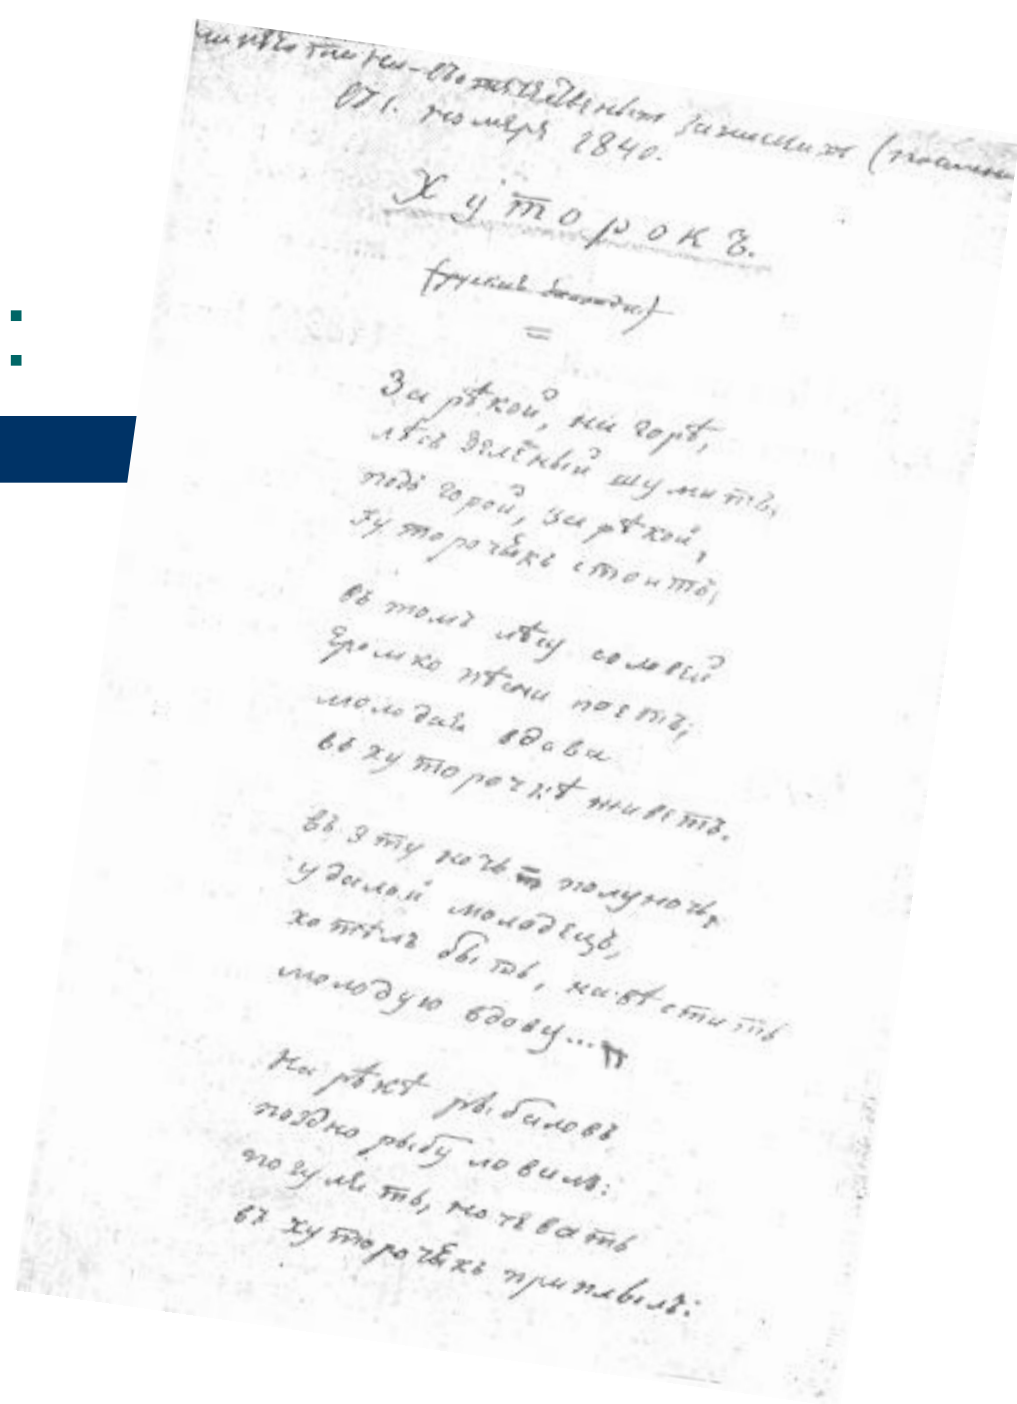 въ 1. номеръ 1840.
Хуторокъ.
(русская баллада)
За рѣкой, на горѣ,
лѣсъ зеленый шумитъ,
подъ горой, за рѣкой,
хуторочикъ стоитъ,
въ томъ лѣсу соловей
громко пѣсни поетъ;
молодая вдова
въ хуторочкѣ живетъ.
въ эту ночь полуночь,
удалой молодецъ,
хотѣлъ быть, навѣстить
молодую вдову...
На рѣкѣ рыбаловъ
поздно рыбу ловилъ:
погулять, ночевать
въ хуторочикъ приплылъ: